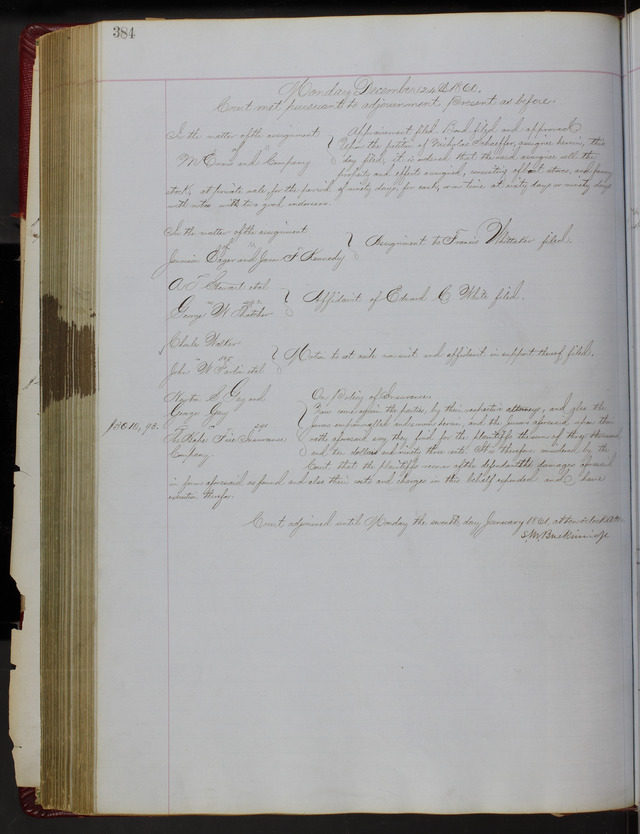 384
Monday December 24th 1860.
Court met pursuant to adjournment, Present as before.
In the matter of the assignment
of
and Company
Appraisement filed. Bond filed and approved
Upon the petition of Nicholas Schaeffer, assignee herein, this
day filed, it is ordered that the said assignee sell the
property and effects assigned, consisting of stoves, and fancy
stock, at private sale, for the period of ninety days, for cash, or on time at sixty days or ninety days
with notes with two good endorsers.
In the matter of the assignment
of
and Jane F Kennedy
Assignment to Francis Whittaker filed.
A T Stewart et al
George W Thatcher
Affidavit of Edward C White filed.
Charles Walker
vs
John W et al
Motion to set aside non suit and affidavit in support thereof filed.
Newton S Gay and
George Gay
vs
Fire Insurance
Company.
$3010,93.
On Policy of Insurance.
Now come again the parties, by their respective attorneys, and also the
jurors empannelled and sworn herein, and the jurors aforesaid, upon their
oath aforesaid say they find for the plaintiffs the sum of three thousand
and ten dollars and ninety three cents. It is therefore considered by the
Court that the plaintiffs recover of the defendant the damages aforesaid
in form aforesaid as found and also their costs and charges in this behalf expended and have
execution therefor.
Court adjourned until Monday the seventh day January 1861, at ten o'clock A.M.